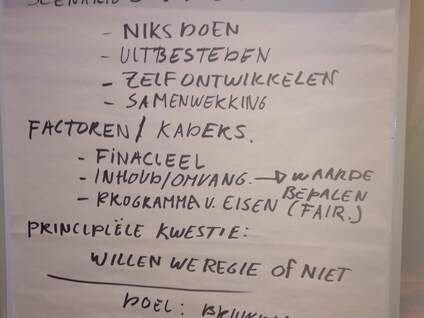 - NIKS DOEN
- UITBESTEDEN
- ZELF ONTWIKKELEN
- SAMENWEKKING
FACTOREN / KADERS.
- FINACIEEL
- INHOUD/OMVANG. → WAARDE BEPALEN
- PROGRAMMA V. EISEN (FAIR.)
PRINCIPIËLE KWESTIE:
WILLEN WE REGIE OF NIET
DOEL: